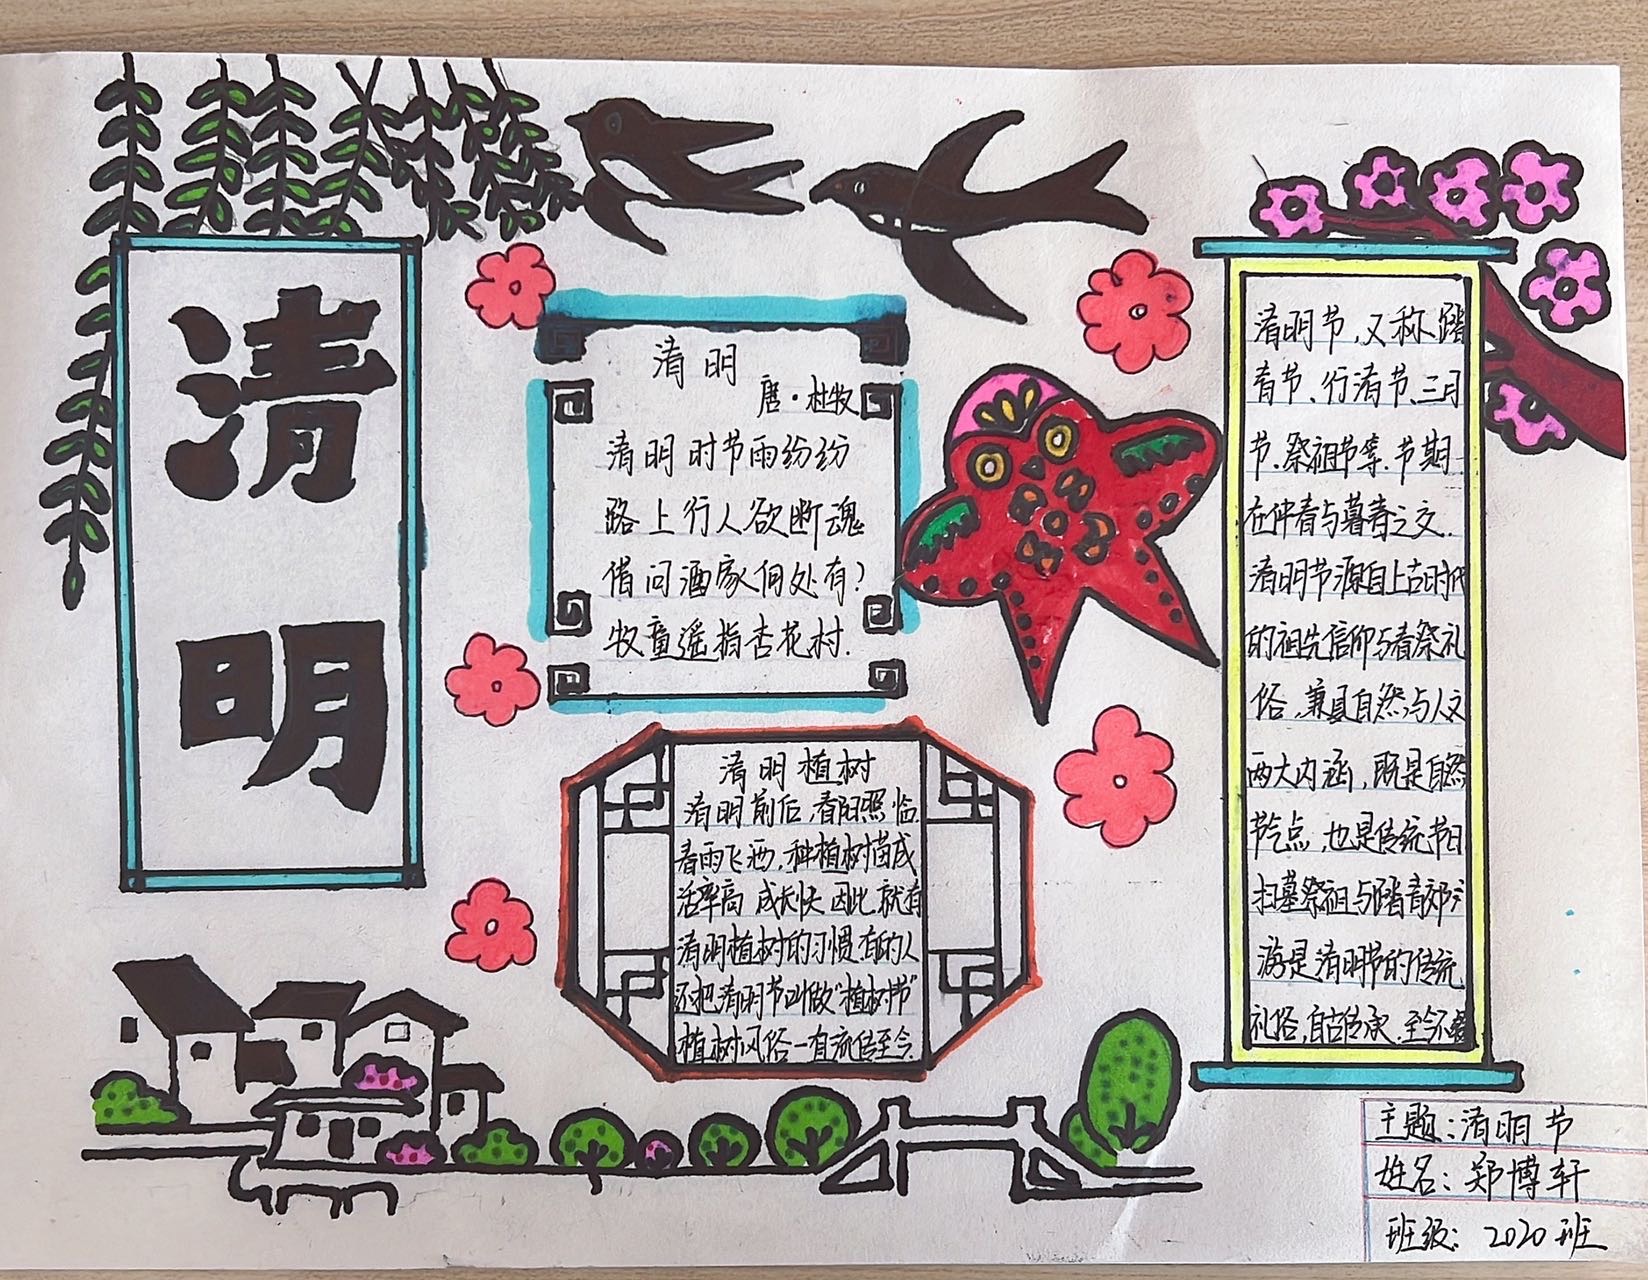 清
明
清明
唐·杜牧
清明时节雨纷纷
路上行人欲断魂
借问酒家何处有?
牧童遥指杏花村.
清明植树
清明前后,春阳照临
春雨飞洒,种植树苗成
活率高 成长快 因此,就有
清明植树的习惯,有的人
还把清明节叫做"植树节"
植树风俗一直流传至今.
清明节,又称踏
青节、行清节、三月
节、祭祖节等.节期
在仲春与暮春之交.
清明节源自上古时代
的祖先信仰与春祭礼
俗,兼具自然与人文
两大内涵,既是自然
节气点,也是传统节日
扫墓祭祖与踏青郊游
是清明节的传统
礼俗,自古传承.至今不
主题:清明节
姓名:郑博轩
班级:2020班